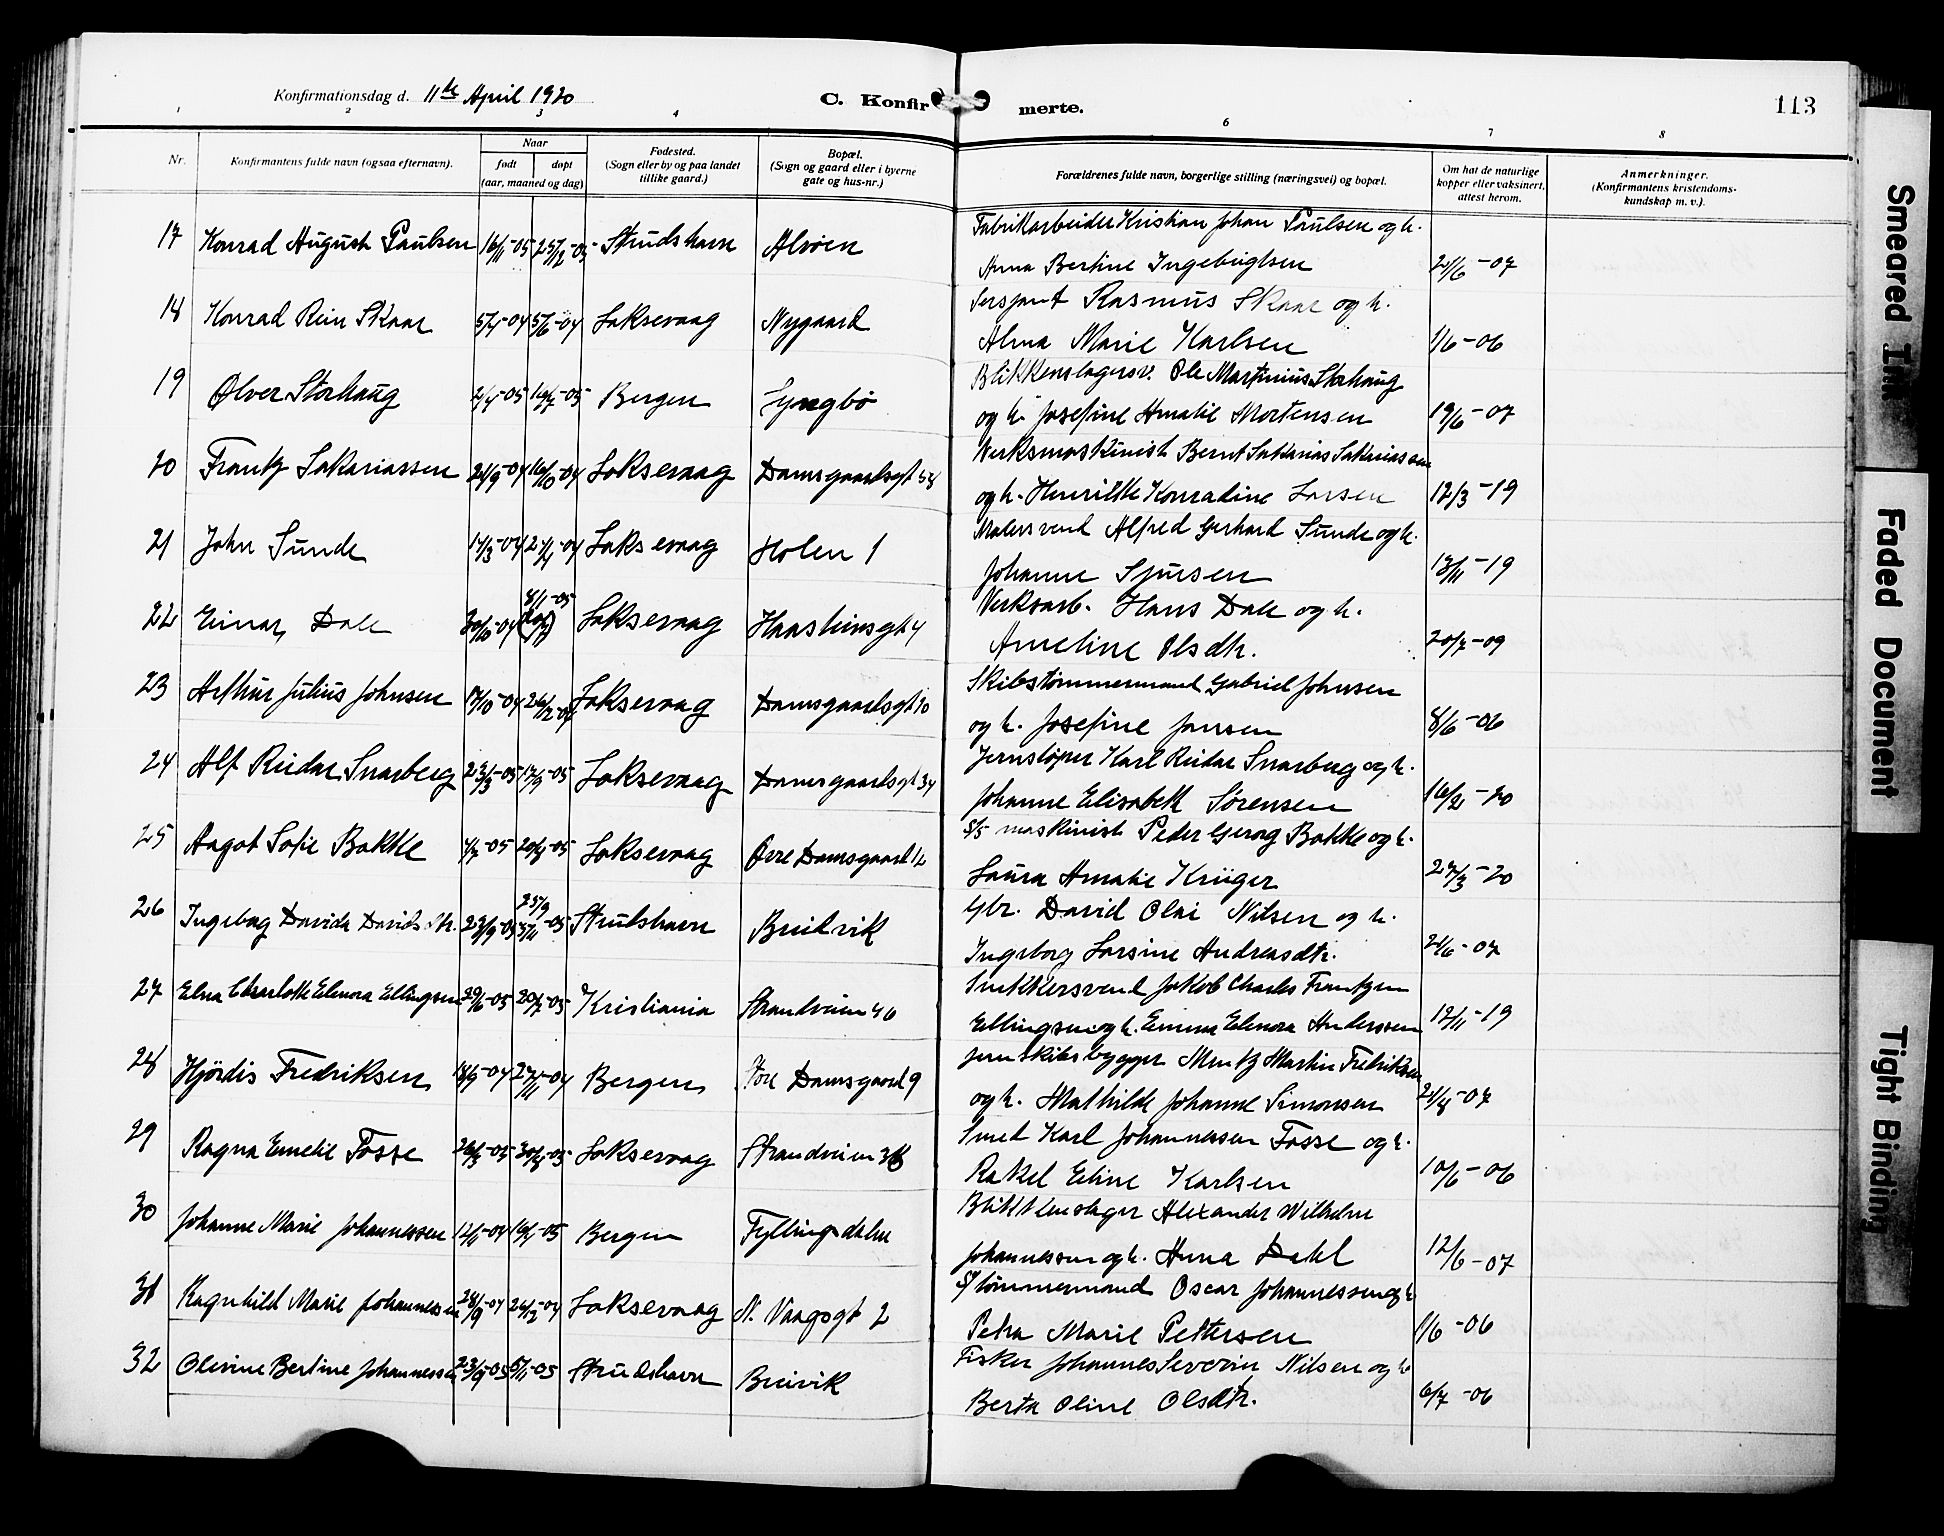 Konfirmationsdag d. 11te April 1920
C. Konfirmerte.
113
1 2 3 4 5 6 7 8
Nr.
Konfirmantens fulde navn (ogsaa efternavn).
Naar
født døpt
(aar, maaned og dag)
Fødested.
(Sogn eller by og paa landet
tillike gaard.)
Bopæl.
(Sogn og gaard eller i byerne
gate og hus-nr.)
Forældrenes fulde navn, borgerlige stilling (næringsvei) og bopæl.
Om hat de naturlige
kopper eller vaksinert,
attest herom.
Anmerkninger.
(Konfirmantens kristendoms-
kundskap m. v.).
Fabrikarbeider Kristian Johan Paulsen og h.
17 Konrad August Paulsen 16/11-05 Strudshavn Alvøen
Anna Bertine Ingebrigtsen 21/6-07
Sersjant Rasmus Skaar og h.
18 Konrad Rein Skaar Laksevaag Nygaard
Alma Marie Karlsen 1/6-06
Blikkenslagersv. Ole Martinius Storhaug
19 Ølver Storhaug Bergen Lyngbø
og h. Josefine Amalie Mortensen 19/6-07
Verksmaskinist Bernt Sakarias Sakariassen
20 Frantz Sakariassen 21/9-04 16/10-04 Laksevaag Damsgaardsgt 58
og h. Henrikke Konradine Larsen 12/3-19
Malersvend Alfred Gerhard Sunde og h.
21 John Sunde Laksevaag Holen 1
Johanne Sjursen 13/11-19
8/1-05
Verksarb. Hans Dale og h.
22 Einar Dale 30/10-04 Laksevaag Haasteinsgt 4
Ameline Olsdtr. 20/7-09
Skibstømmermand Gabriel Johnsen
23 Arthur Julius Johnsen 17/10-04 26/12-04 Laksevaag Damsgaardsgt 70
og h. Josefine Jansen 8/6-06
Jernstøper Karl Reidar Snarberg og h.
24 Alf Reidar Snarberg 23/3-05 Laksevaag Damsgaardsgt 34
Johanne Elisabeth Sørensen 16/2-20
S/S maskinist Peder Georg Bakke og h.
25 Aagot Sofie Bakke Laksevaag Øvre Damsgaard 12
Laura Amalie Krüger 27/3-20
Gbr. David Olai Nilsen og h.
26 Ingeborg Davida Davidsdtr. 23/9-05 5/11-05 Strudshavn Breidvik
Ingeborg Larsine Andreasdtr. 21/6-07
Snekkersvend Jakob Charles Frantzen
27 Elna Charlotte Elenora Ellingsen 29/6-05 Kristiania Strandveien 46
Ellingsen og h. Emma Elenora Anderssen 12/11-19
Jernskibsbygger Mentz Martin Fredriksen
28 Hjördis Fredriksen 18/9-04 27/11-04 Bergen Store Damsgaard 9
og h. Mathilde Johanne Simonsen 21/8-07
Smed Karl Johannessen Fosse og h.
29 Ragna Emelie Fosse Laksevaag Strandveien 36
Rakel Eline Karlsen 10/6-06
Blikkenslager Alexander Wilhelm
30 Johanne Marie Johannessen Bergen Fyllingsdalen
Johannessen og h. Anna Dahl 12/6-07
S/tømmermand Oscar Johannessen og h
31 Ragnhild Marie Johannessen 28/9-04 26/12-04 Laksevaag N. Vaagsgt 2
Petra Marie Pettersen 1/6-06
Fisker Johannes Severin Nilsen og h
32 Olerine Bertine Johannessen 5/11-05 Strudshavn Breivik
Berta Oline Olsdtr. 6/7-06
Smeared Ink
Faded Document
Tight Binding